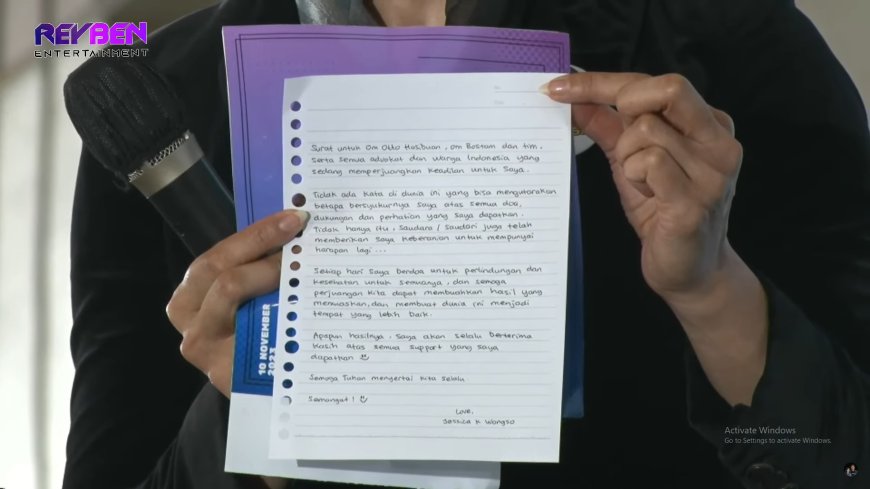 REYBEN
ENTERTAINMENT
Surat untuk Om Otto Hasibuan, Om Bostam dan tim,
serta semua advokat dan warga Indonesia yang
sedang memperjuangkan keadilan untuk saya.
Tidak ada kata di dunia ini yang bisa mengutarakan
betapa bersyukurnya saya atas semua doa,
dukungan dan perhatian yang saya dapatkan.
Tidak hanya itu, saudara / saudari juga telah
memberikan saya keberanian untuk mempunyai
harapan lagi ...
Setiap hari saya berdoa untuk perlindungan dan
kesehatan untuk semuanya, dan semoga
perjuangan kita dapat membuahkan hasil yang
memuaskan, dan membuat dunia ini menjadi
tempat yang lebih baik.
Apapun hasilnya, saya akan selalu berterima
kasih atas semua support yang saya
dapatkan ☺
Semoga Tuhan menyertai kita selalu
Semangat ! ☺
Love,
Jessica K Wongso
10 NOVEMBER
2023
Activate Windows
Go to Settings to activate Windows.